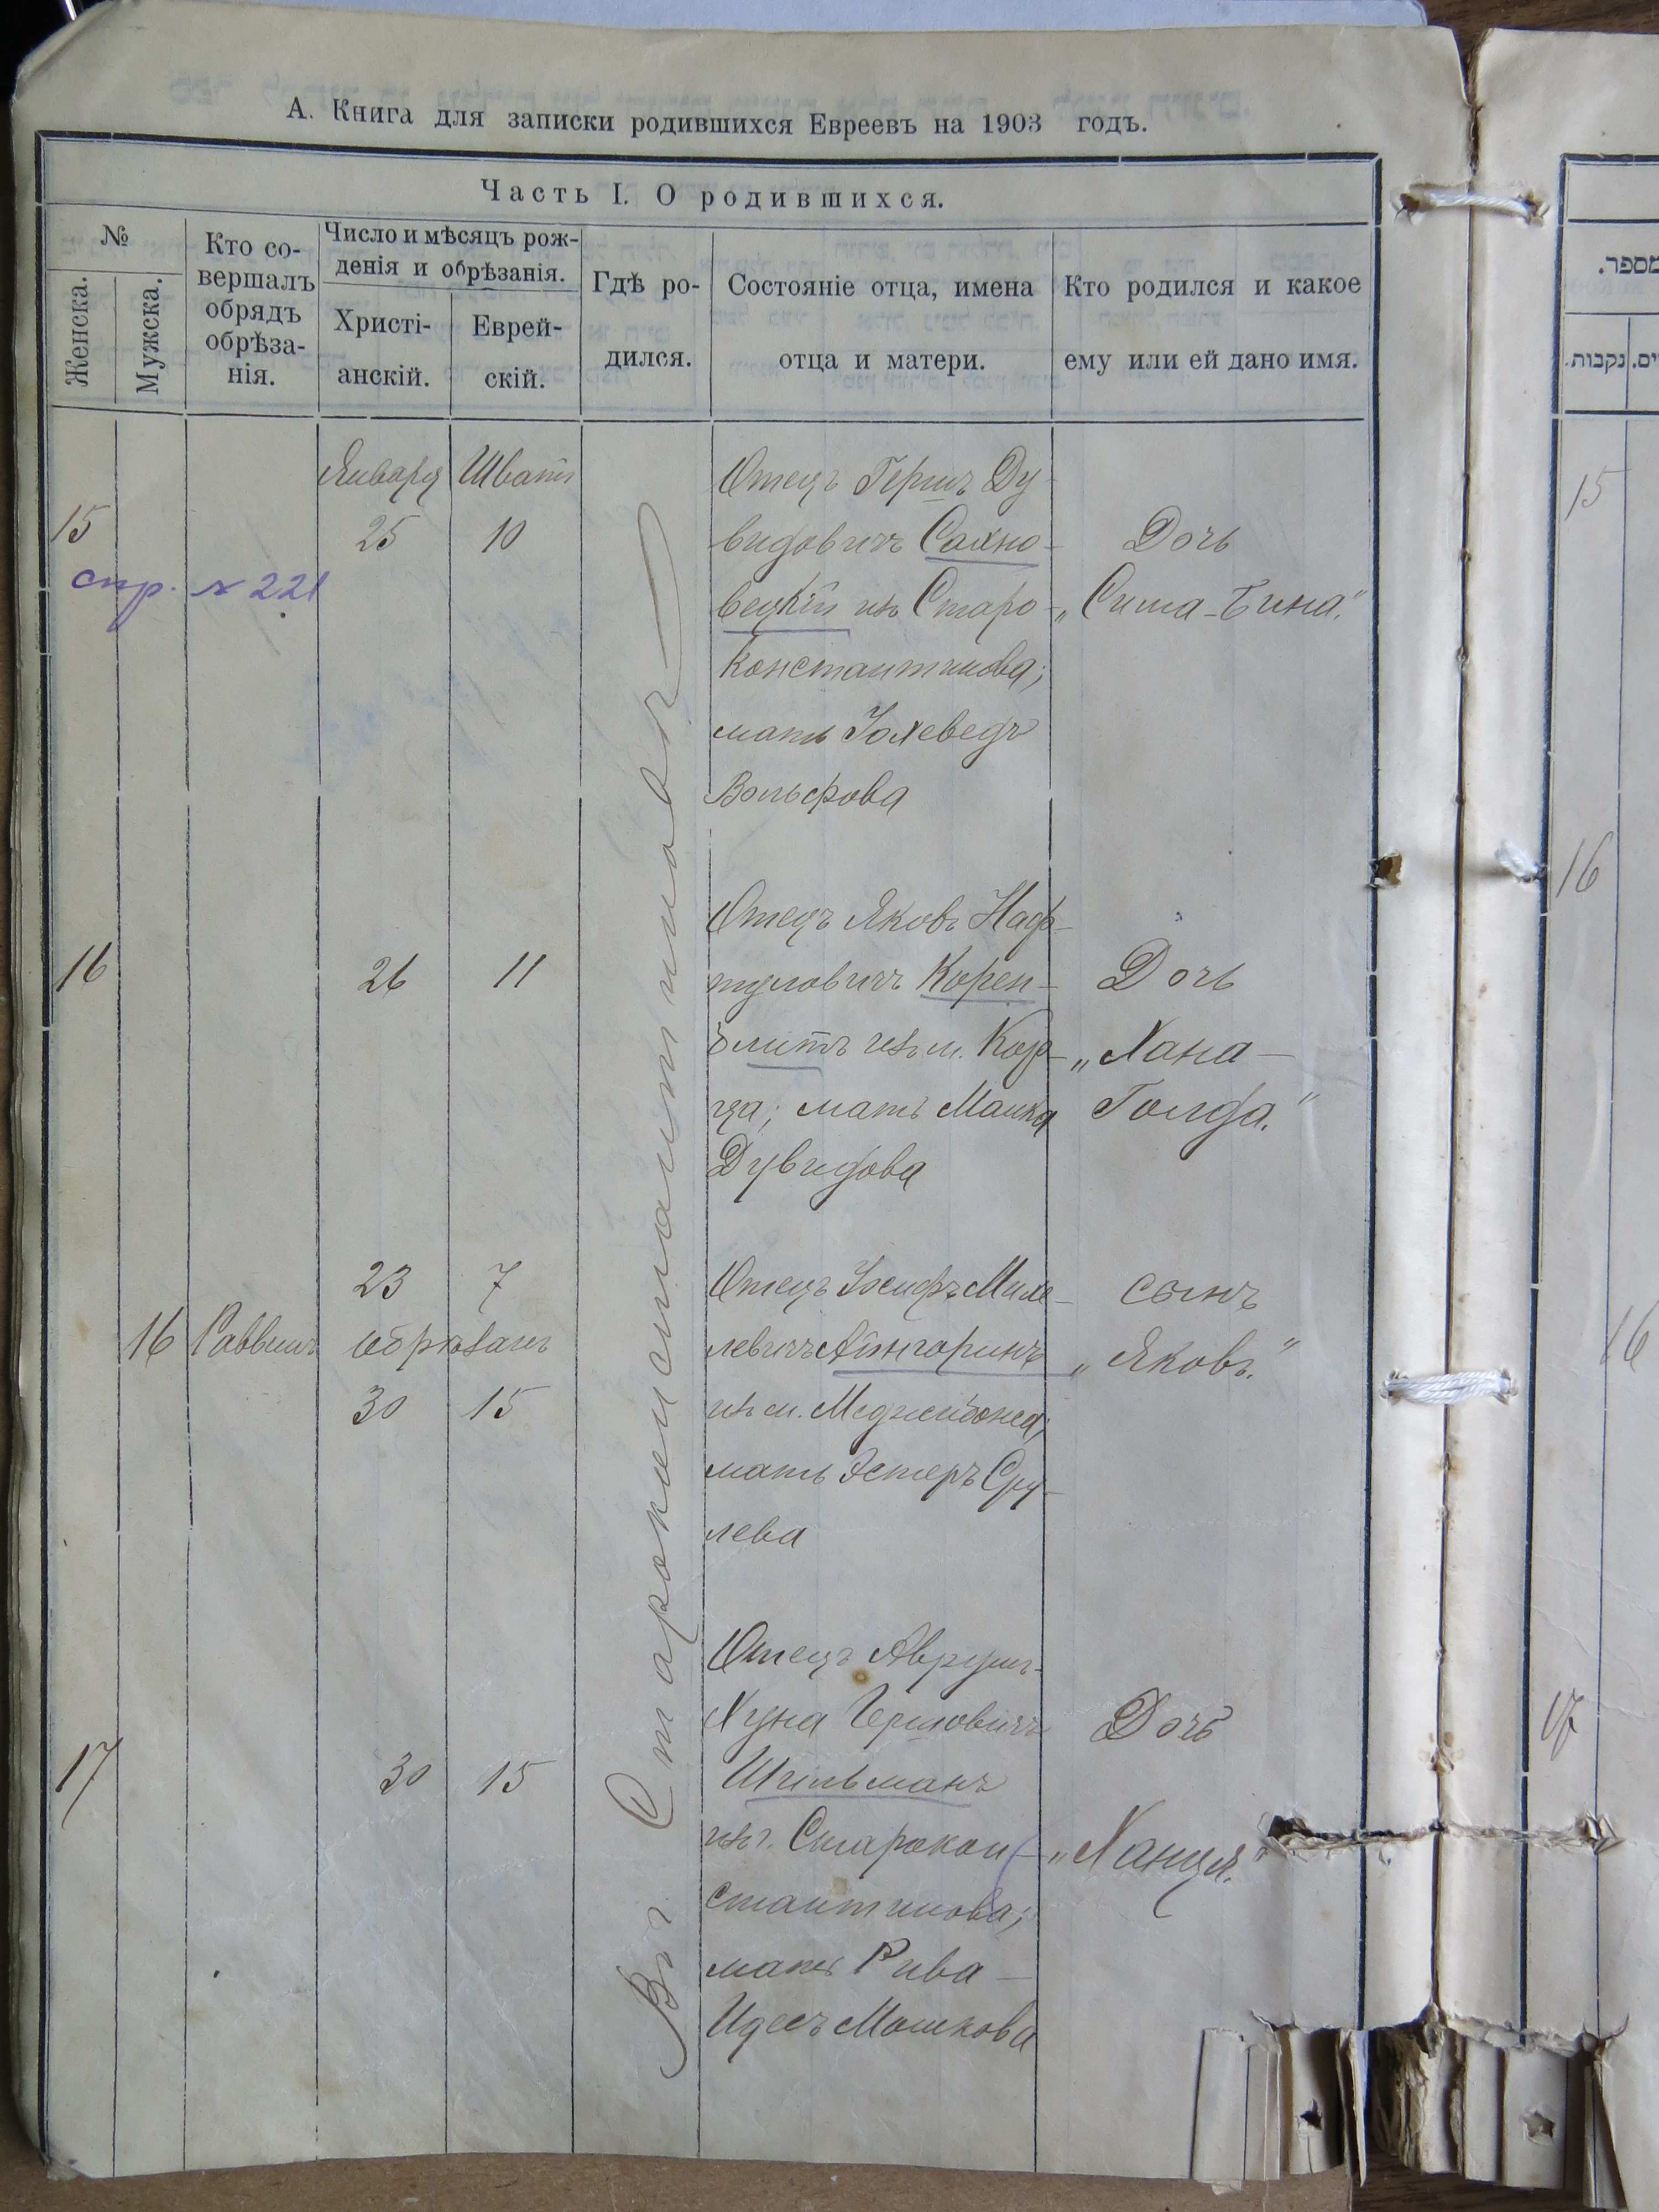 А. Книга для записки родившихся Евреевъ на 1903 годъ.
Часть I. О родившихся.
№
Женска.
Мужска.
Кто со-
вершалъ
обрядъ
обрѣза-
нія.
Число и мѣсяцъ рож-
денія и обрѣзанія.
Христі-
анскій.
Еврей-
скій.
Гдѣ ро-
дился.
Состояніе отца, имена
отца и матери.
Кто родился и какое
ему или ей дано имя.
Въ Староконстантиновѣ
15
спр. № 221
Января
25
Шватъ
10
Отецъ Гершъ Ду-
видовичъ Сахно-
вецкій изъ Старо-
константинова;
мать Іохеведъ
Вольфова
Дочь
„Сима-Бина."
16
26
11
Отецъ Яковъ Наф-
туловичъ Корен-
блитъ изъ м. Код-
мать Манка
Дувидова
Дочь
„Хана-
Голда."
16
Раввинъ
23
7
обрѣзанъ
30
15
Отецъ Іосифъ Михе-
левичъ Айнгоринъ
изъ м. Меджибожа;
мать Эстеръ Сру-
лева
сынъ
„Яковъ."
17
30
15
Отецъ Аврумъ-
Хуна Гершовичъ
Шпильманъ
изъ г. Старокон-
стантинова;
мать Рива-
Идесъ Мошкова
Дочь
„Ханця."
מספר.
נקבות.
15
16
16
17